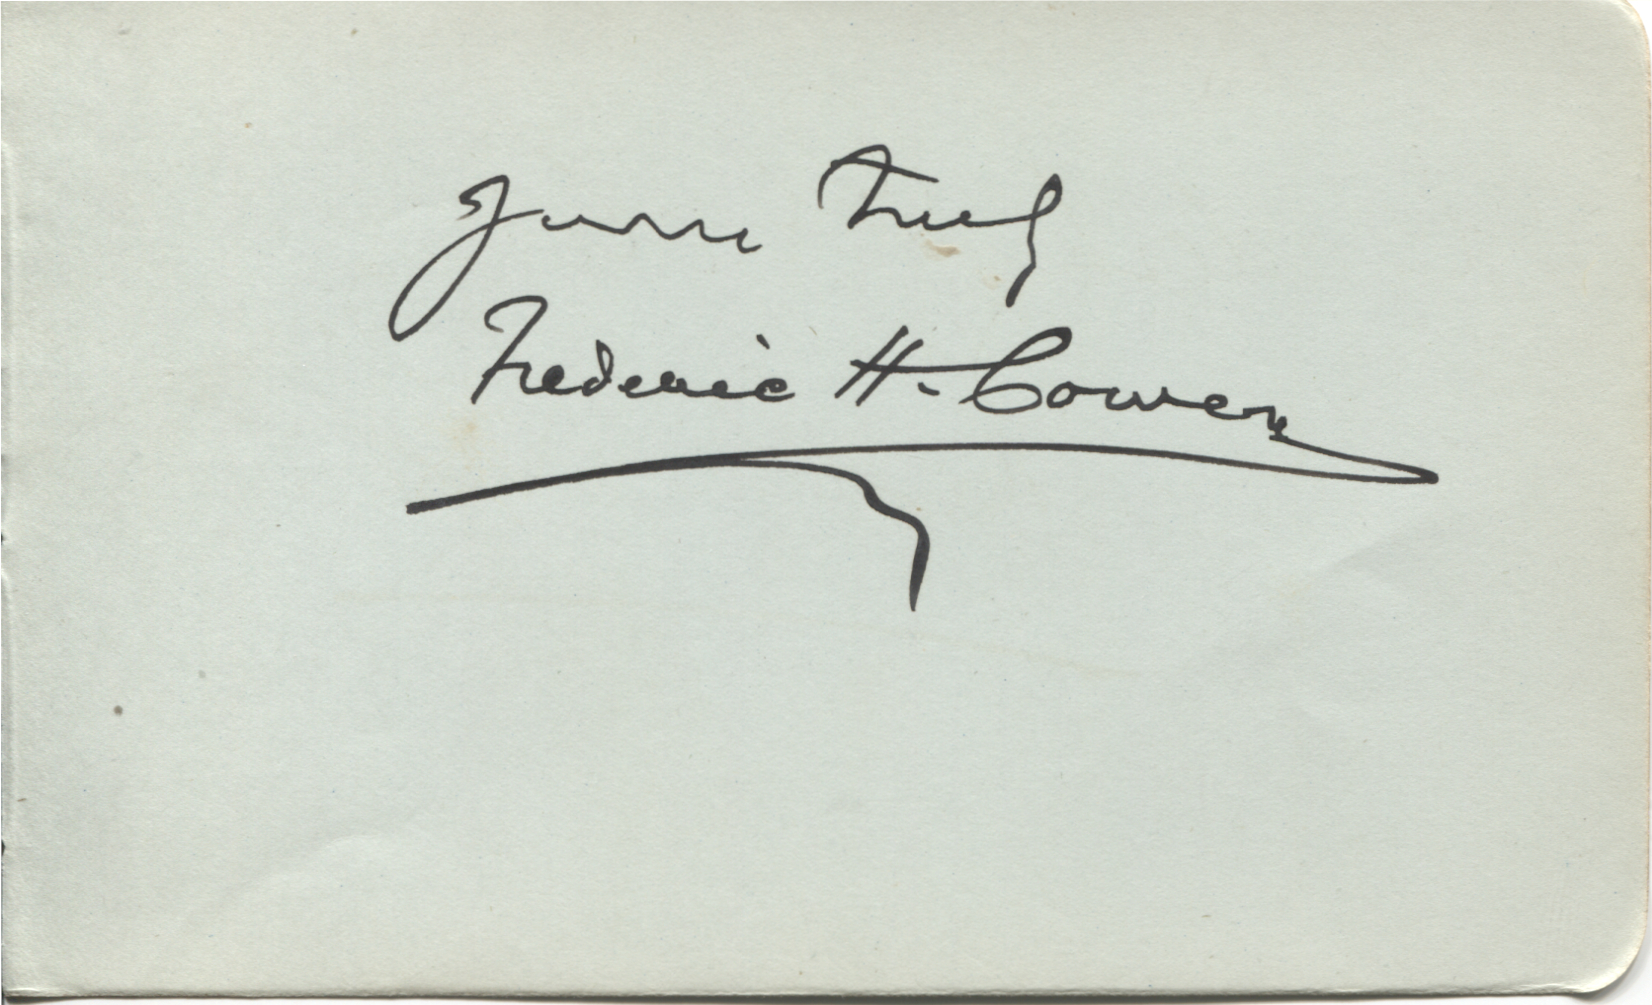 Yours Truly
Frederic H. Cowen